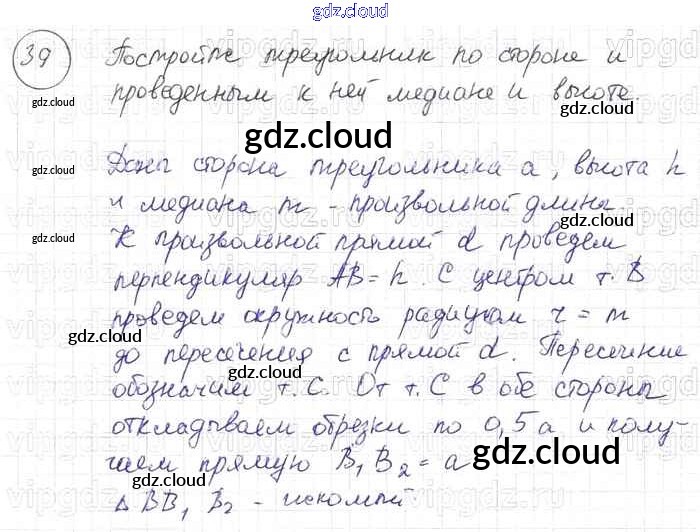 gdz.cloud
39 Постройте треугольник по стороне и
gdz.cloud
проведенным к ней медиане и высоте
gdz.cloud
gdz.cloud
Дана сторона треугольника a, высота h
и медиана m - произвольной длины.
gdz.cloud
К произвольной прямой d проведем
gdz.cloud
перпендикуляр AB = h. С центром т. B
проведем окружность радиусом r = m
gdz.cloud
до пересечения с прямой d. Пересечение
gdz.cloud
обозначим т. C. От т. C в обе стороны
откладываем отрезки по 0,5a и полу-
gdz.cloud
чаем прямую B₁B₂ = a
gdz.cloud
Δ BB₁B₂ - искомый
gdz.cloud